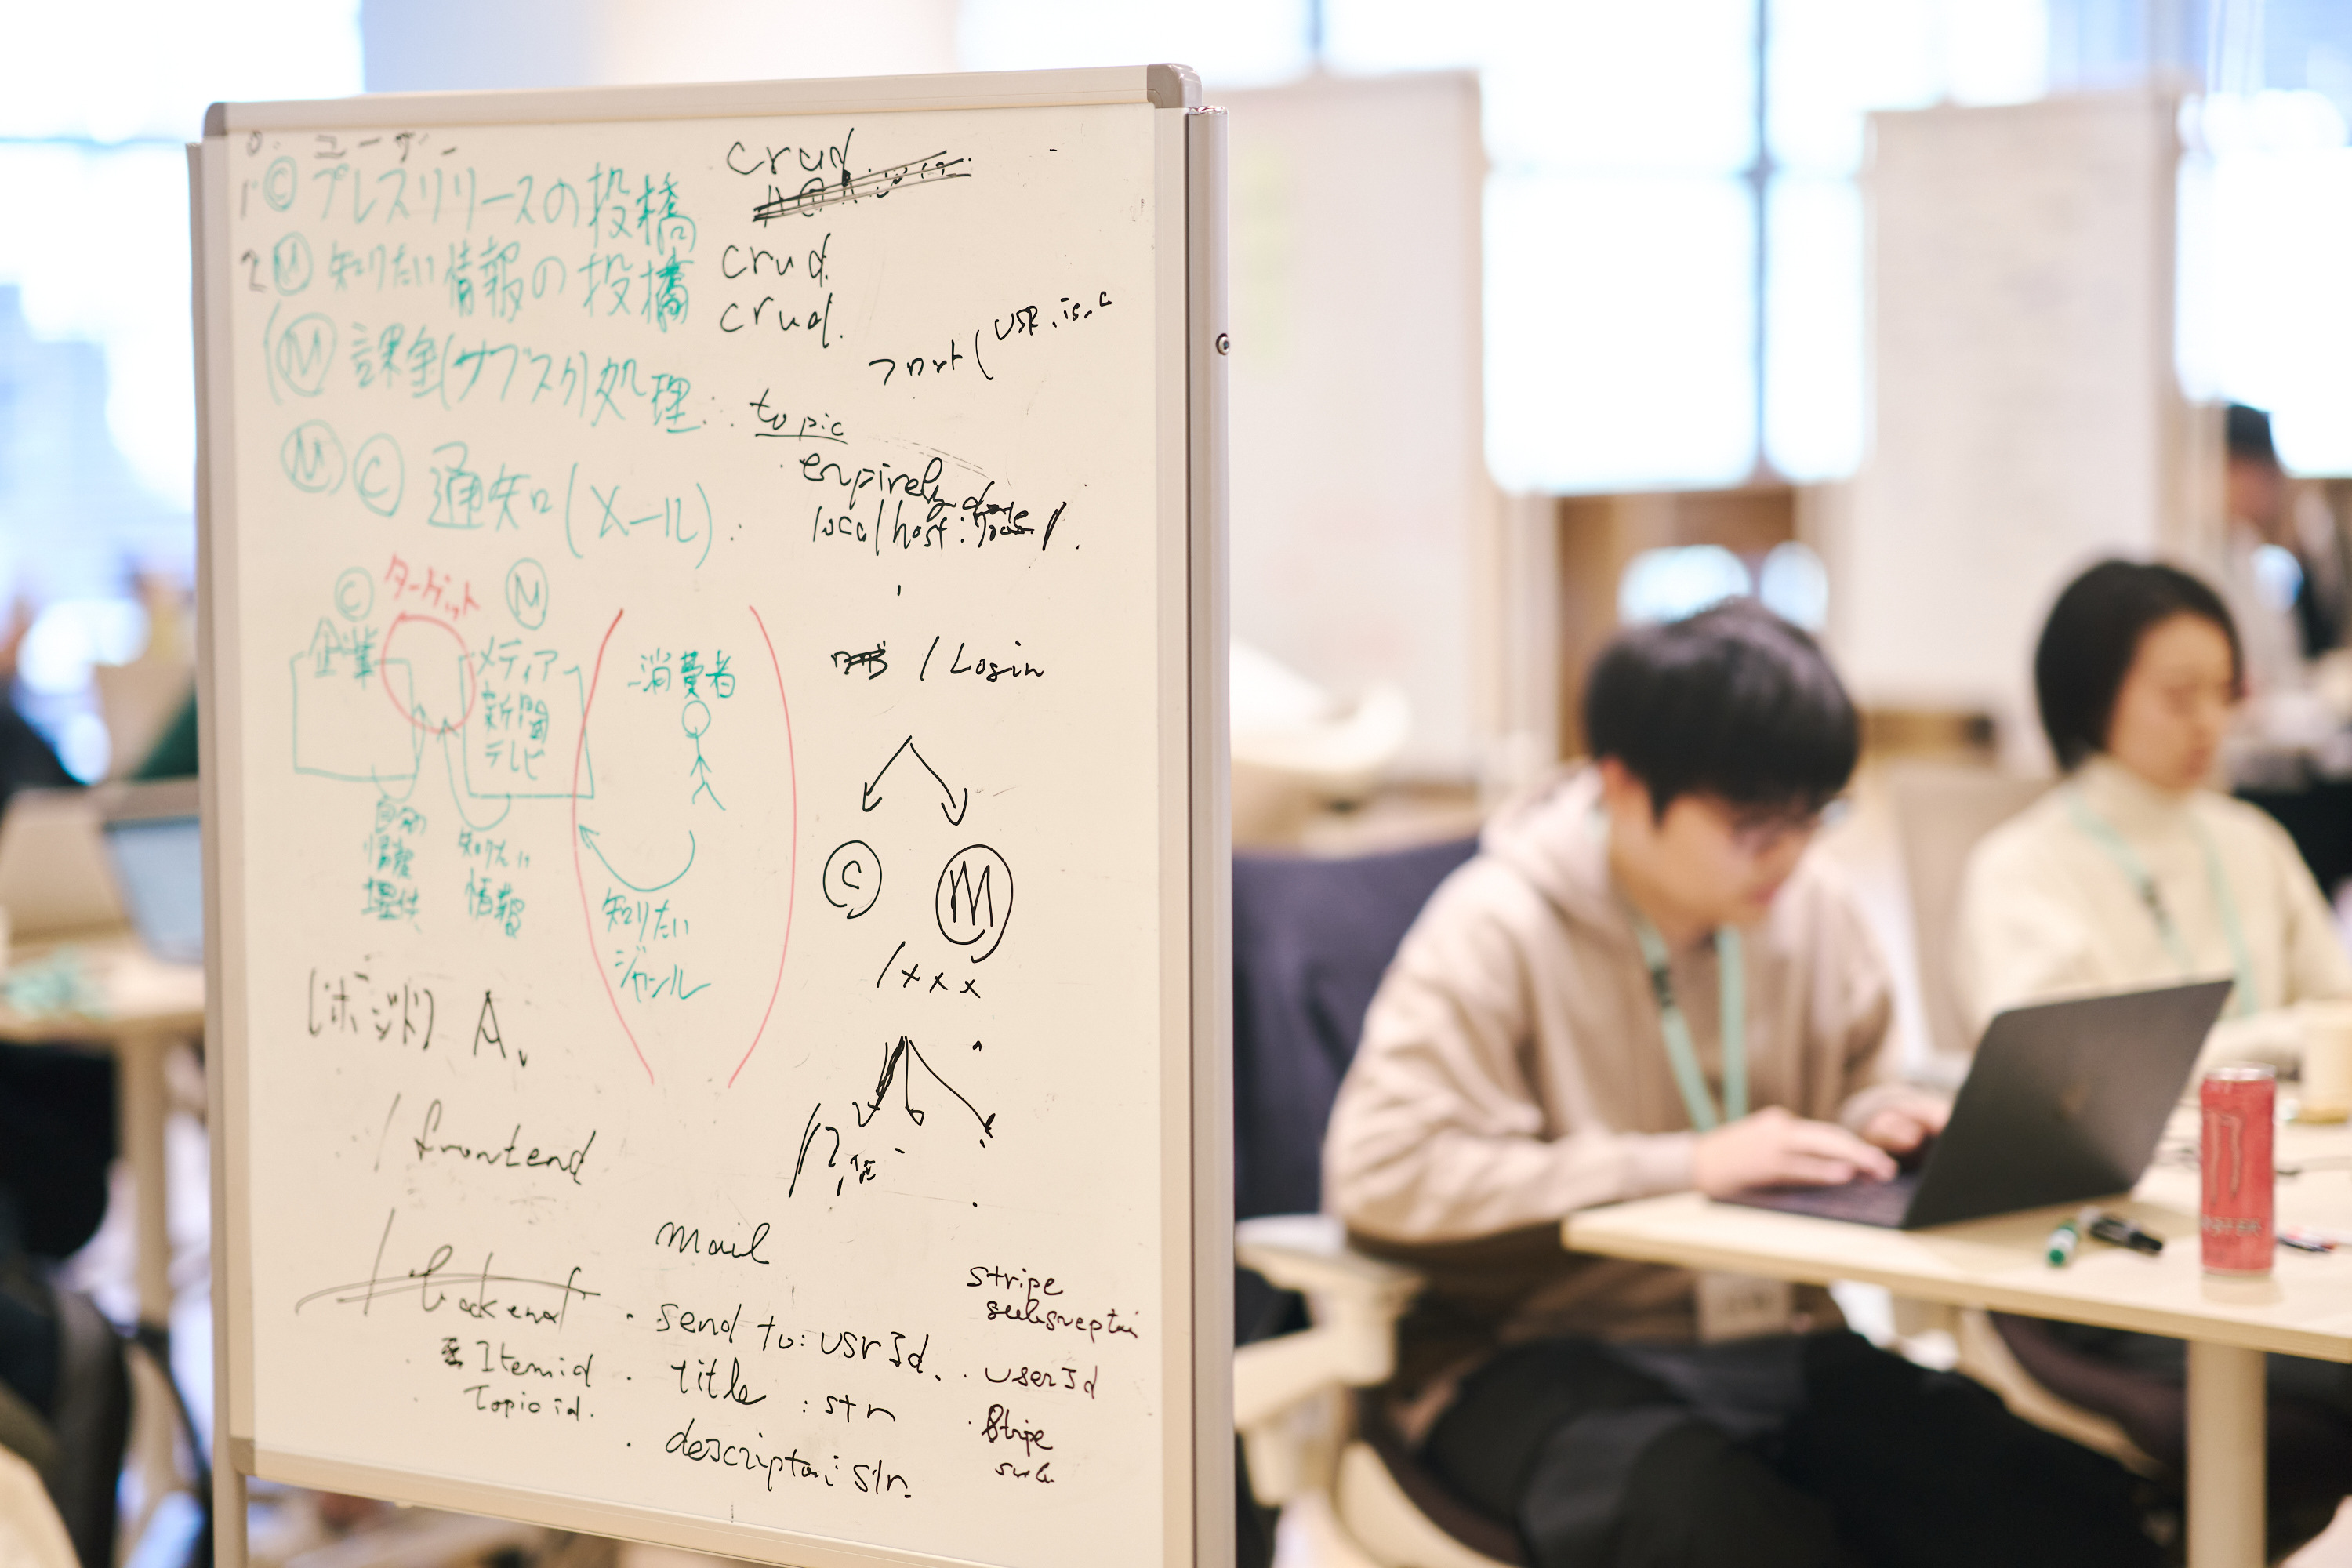 0. ユーザー
1 Ⓒ プレスリリースの投稿
crud
2 Ⓜ 知りたい情報の投稿
crud
crud.
(Ⓜ 課金(サブスク)処理 :
フロント(
topic
Ⓜ Ⓒ 通知(メール) :
localhost:
Ⓒ ターゲット Ⓜ
企業
メディア
新聞
テレビ
消費者
/Login
自分の
情報
提供
知りたい
情報
知りたい
ジャンル
Ⓒ Ⓜ
/xxx
A.
/frontend
/backend
Itemid
Topic id.
mail
・send to: usrId.
・title : str
・descriptai str.
stripe
・userId
・Stripe